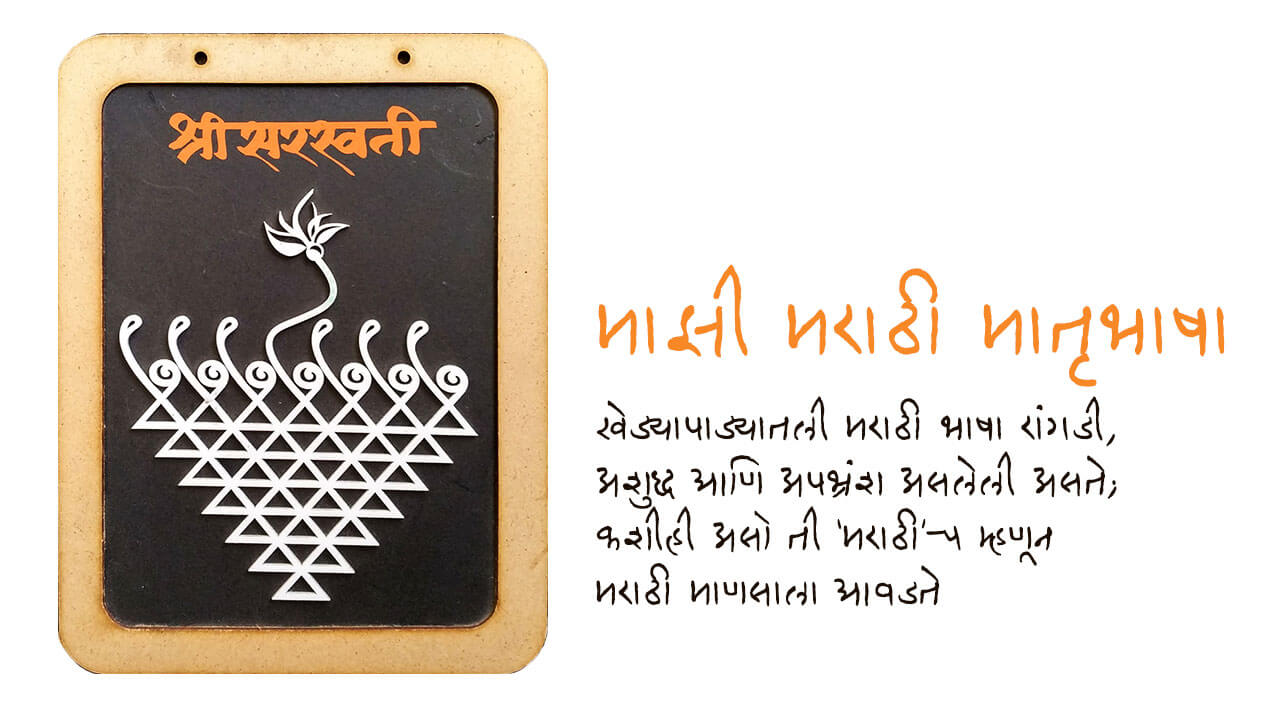 श्री सरस्वती
माझी मराठी मातृभाषा
खेड्यापाड्यातली मराठी भाषा रांगडी,
अशुद्ध आणि अपभ्रंश असलेली असते;
कशीही असो ती 'मराठी'-च म्हणून
मराठी माणसाला आवडते